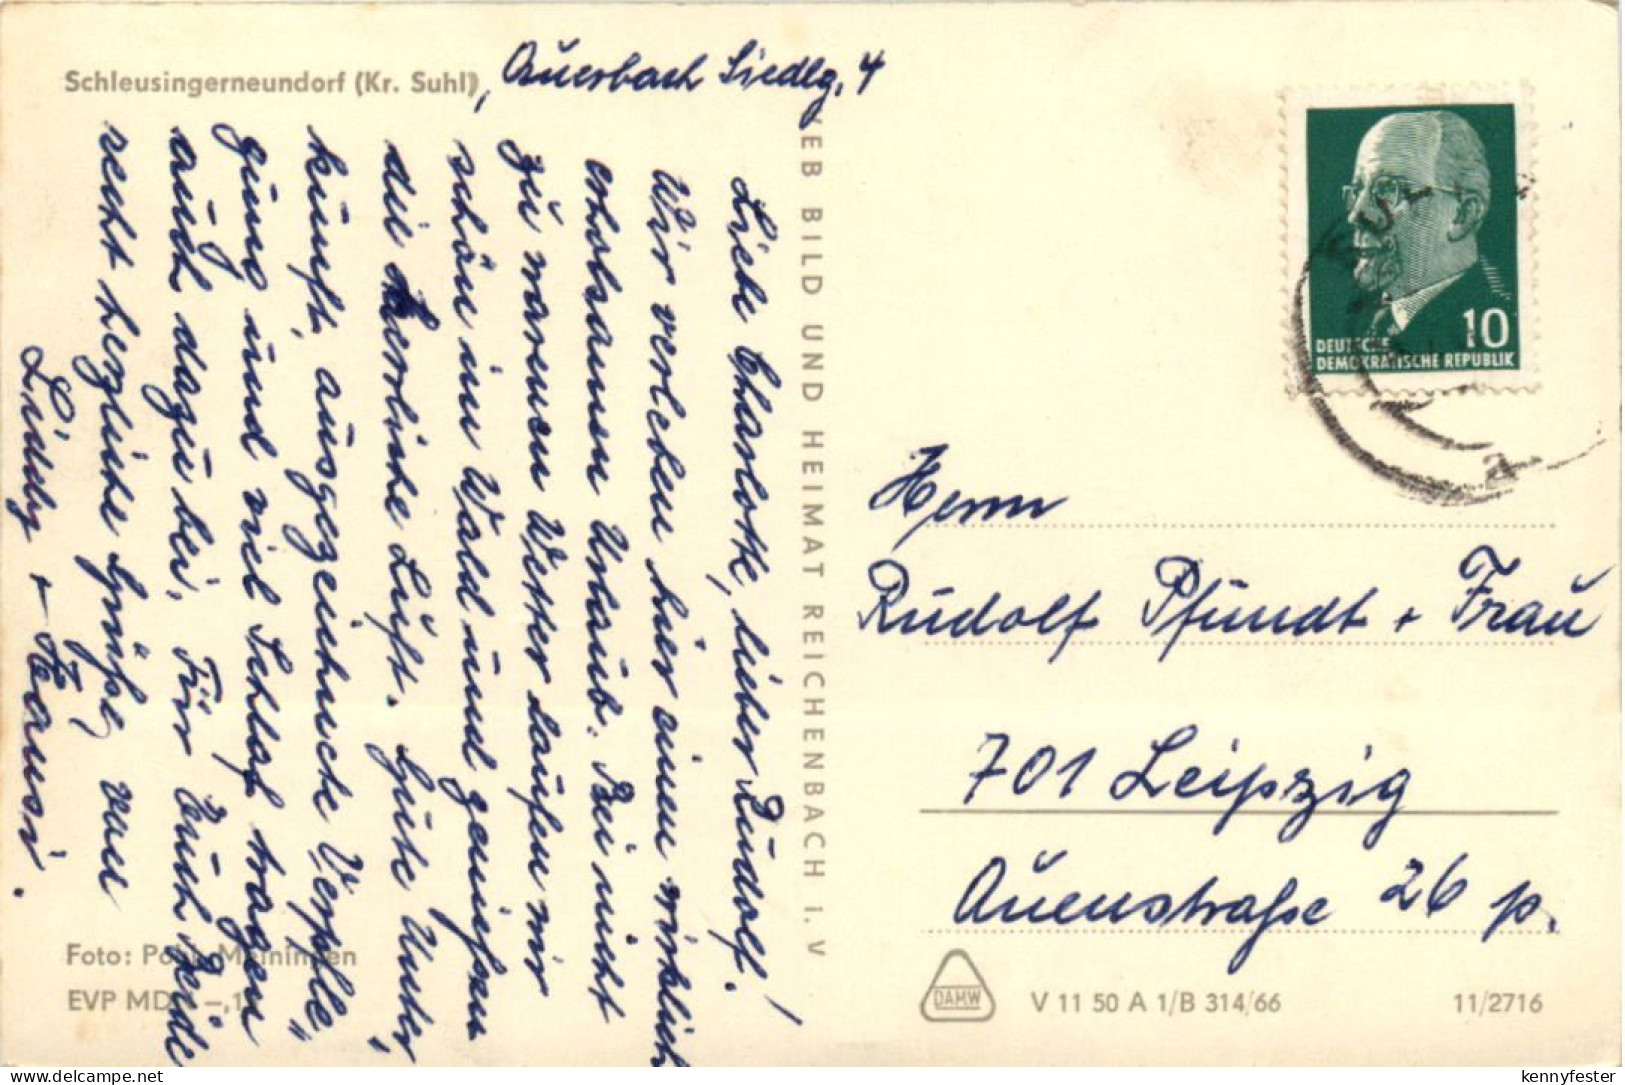 Schleusingerneundorf (Kr. Suhl), Auerbach Siedlg. 4
Liebe Charlotte, lieber Rudolf!
Wir verleben hier einen wirklich
erholsamen Urlaub. Bei nicht
zu warmen Wetter laufen wir
schön im Wald und genießen
die herrliche Luft. Gute Unter
kunft, ausgezeichnete Verpfle=
gung und viel Schlaf tragen
auch dazu bei. Für Euch beide
recht herzliche Grüße von
+ Hansi.
Foto: Meiningen
EVP MD
VEB BILD UND HEIMAT REICHENBACH I. V
DEUTSCHE
DEMOKRATISCHE REPUBLIK
10
Herrn
Rudolf Pfundt + Frau
701 Leipzig
Auenstraße 26 p.
DAMW
V 11 50 A 1/B 314/66
11/2716
kennyfester